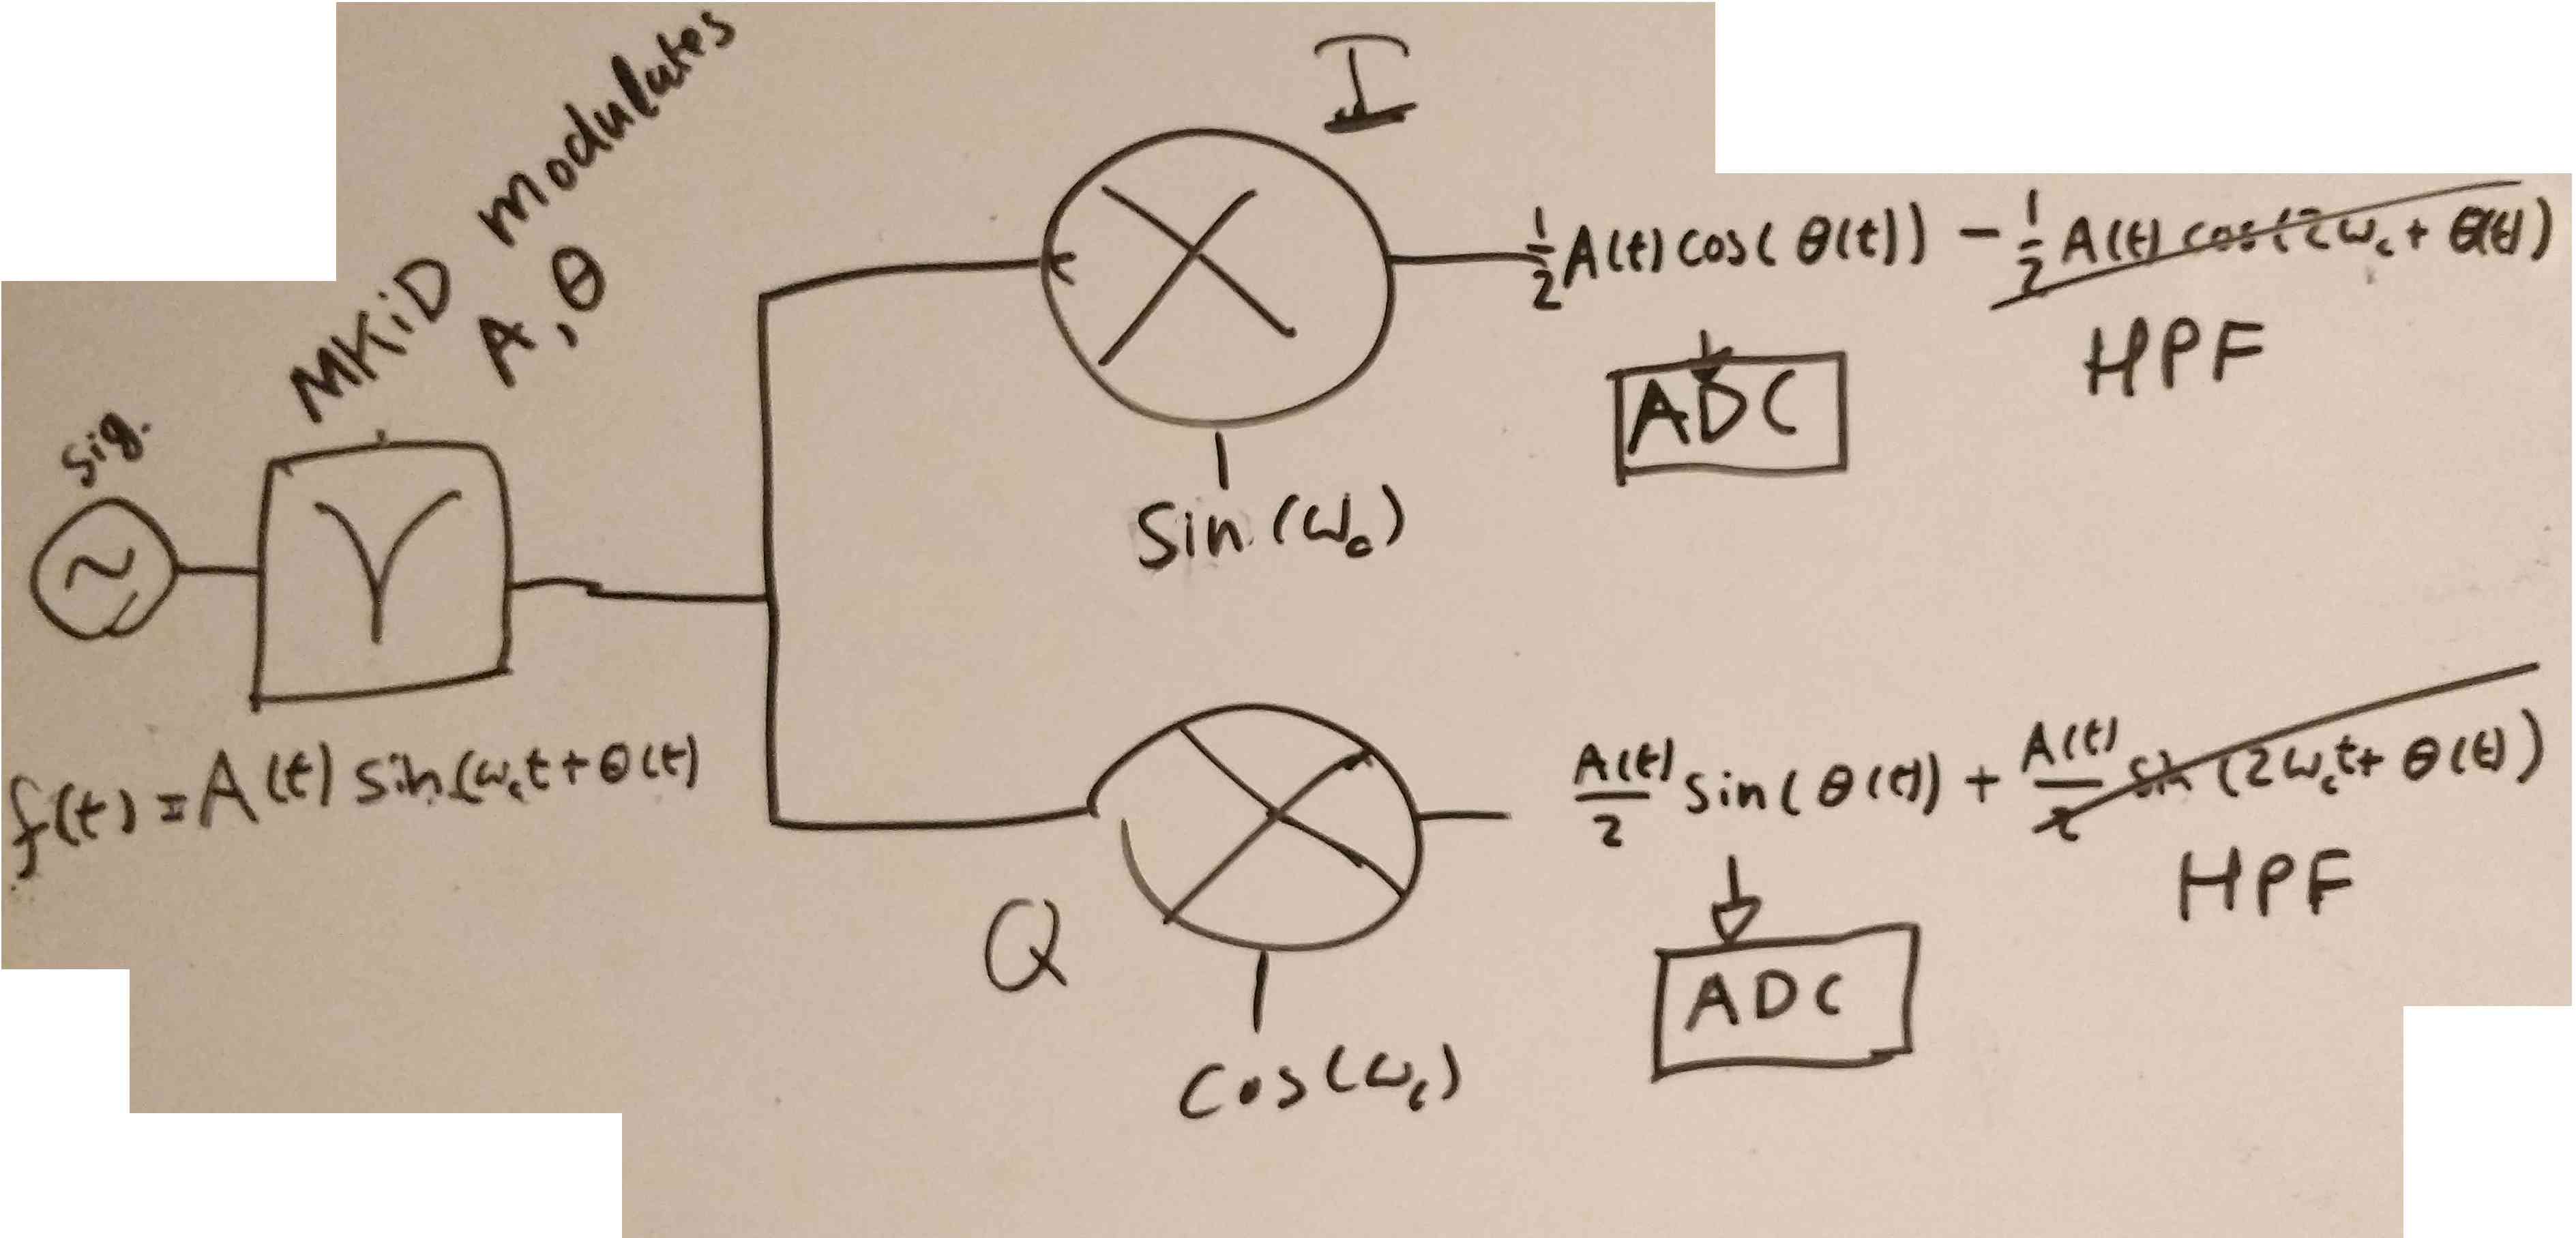 MKiD modulates
A, θ
sig.
f(t) = A(t) sin(ω_c t + θ(t)
I
Sin(ω_c)
½ A(t) cos(θ(t)) - ½ A(t) cos(2ω_c + θ(t))
HPF
ADC
Q
Cos(ω_c)
A(t)/2 sin(θ(t)) + A(t)/2 sin(2ω_c t + θ(t))
HPF
ADC